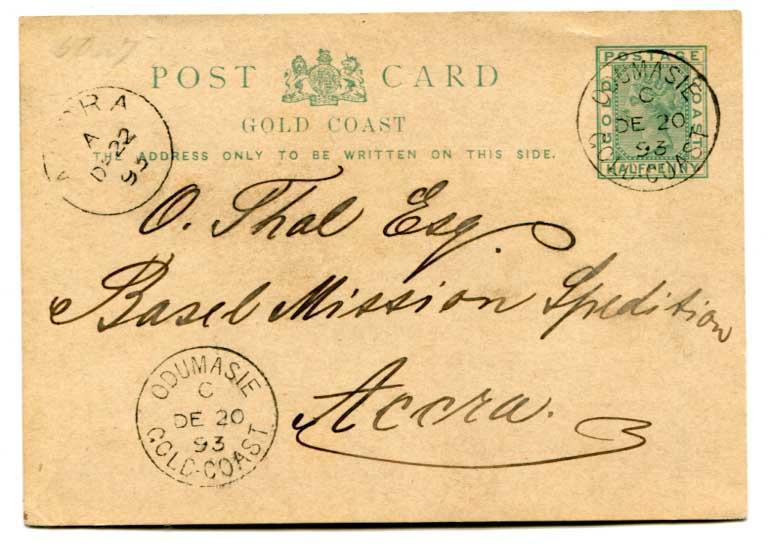 POST CARD
GOLD COAST
THE ADDRESS ONLY TO BE WRITTEN ON THIS SIDE.
POSTAGE
GOLD COAST
HALFPENNY
ODUMASIE
C
DE 20
93
GOLD-COAST
ACCRA
A
DE 22
93
O. Thal Esq.
Basel Mission Spedition
Accra.
ODUMASIE
C
DE 20
93
GOLD-COAST